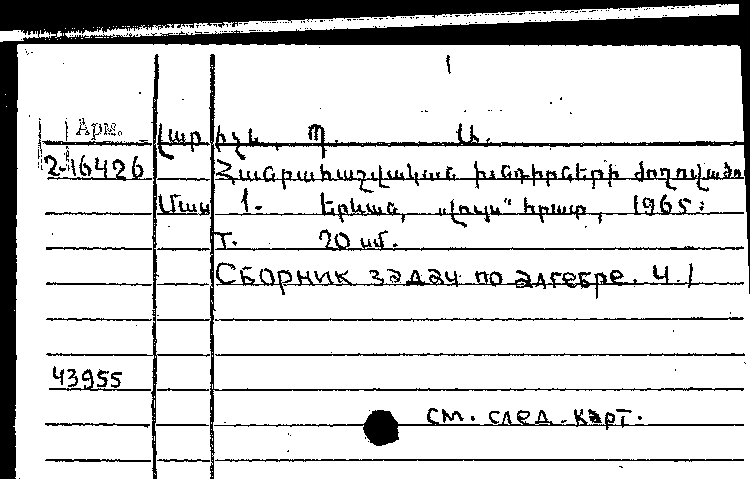 1
Арм. Լարիչև, Պ. Ա.
2-16426 Հանրահաշվական խնդիրների ժողովածու
Մաս 1. Երևան, „Լույս" հրատ, 1965:
т. 20 սմ.
Сборник задач по алгебре. Ч. 1
43955
см. след. карт.